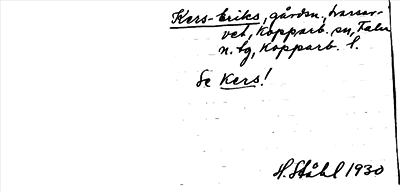 Kers-Eriks, gårdsn., Svarvar-
vet, Kopparb. sn, Falu
n. tg, Kopparb. l.
Se Kers!
H. Ståhl 1930